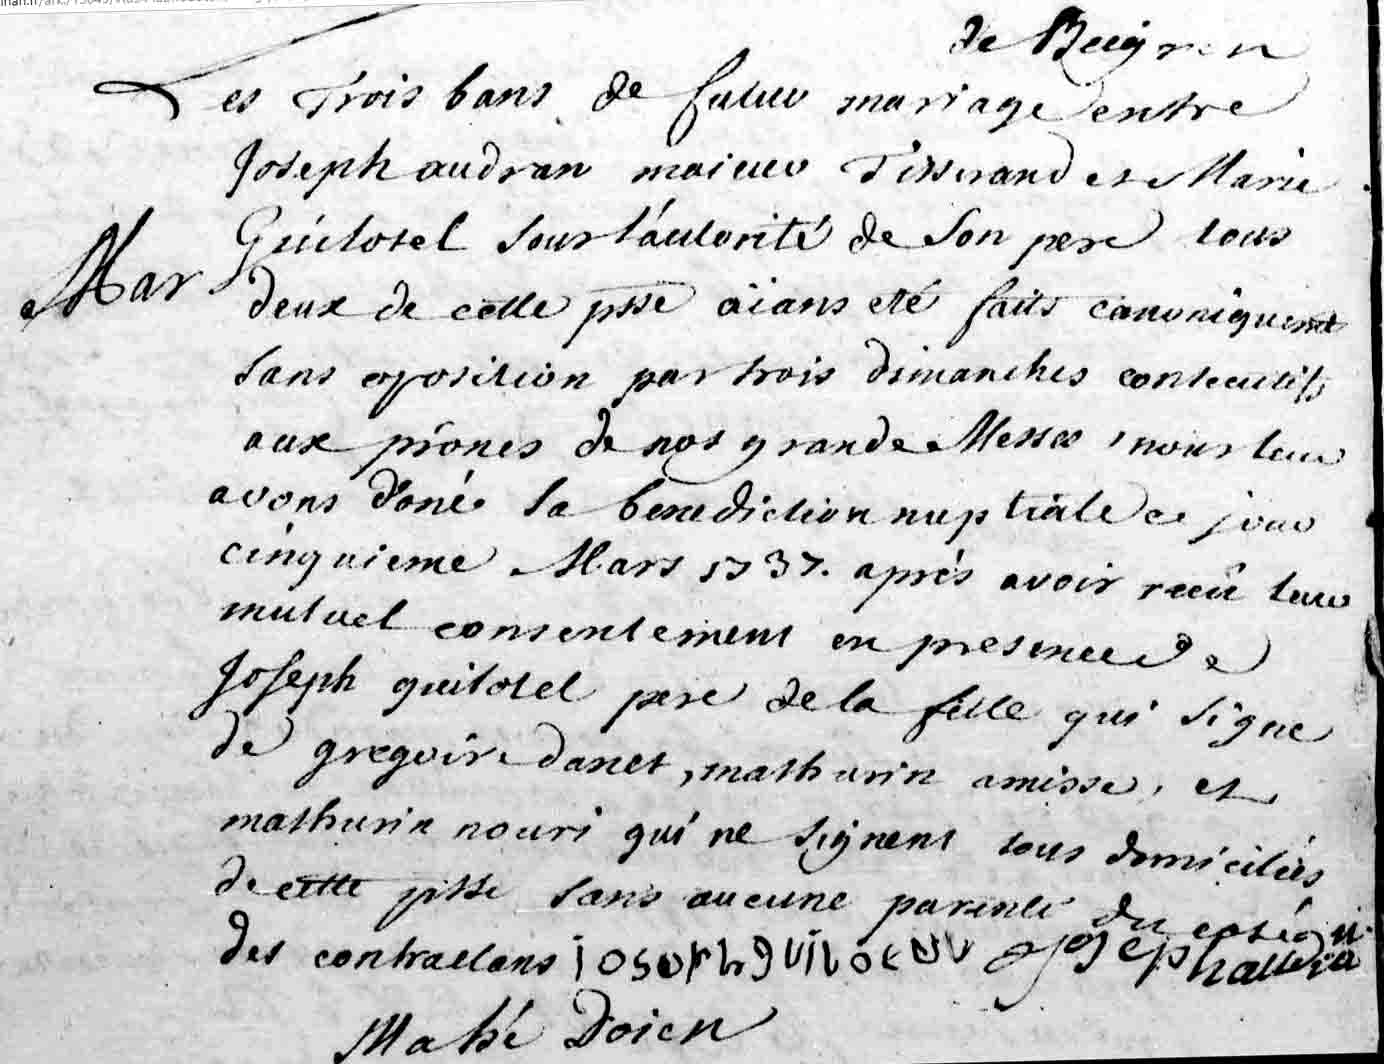 de Beignon
Les Trois bans de futur mariage entre
Joseph audran maieur Tisserand et Marie
Guilotel sous l'autorité de son pere tous
Mar
deux de cette psse aïans eté faits canoniquemt
sans oposition par trois dimanches consecutifs
aux prônes de nos grande Messes, nous leur
avons doné la benediction nuptiale ce jour
cinquieme Mars 1737. aprés avoir receu leur
mutuel consentement en presence de
Joseph guilotel pere de la fille qui signe
de gregoire danet, mathurin amisse, et
mathurin nouri qui ne signent tous domiciliés
de cette psse sans aucune parenté du costé
des contractans ioseph guilotel Joseph audran
Mahé Doien